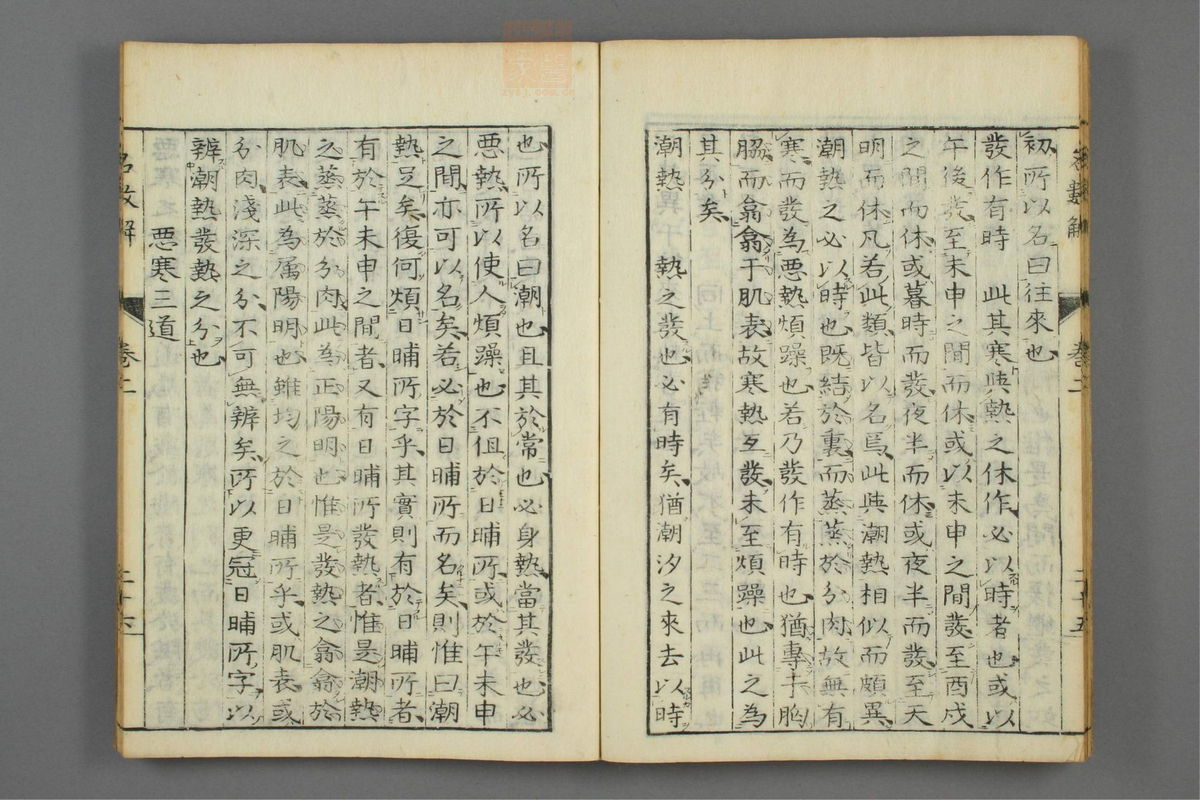 初所以名曰往來也
發作有時　此其寒與熱之休作必以時者也或以
午後發至未申之間而休或以未申之間發至酉戌
之間而休或暮時而發夜半而休或夜半而發至天
明而休凡若此類皆以名焉此與潮熱相似而頗異
潮熱之必以時也既結於裏而蒸蒸於分肉故無有
寒而發為惡熱煩躁也若乃發作有時也猶專于胸
脇而翕翕于肌表故寒熱互發未至煩躁也此之為
其分矣
潮熱　熱之發也必有時矣猶潮汐之來去以時
卷二
二十五
也所以名曰潮也且其於常也必身熱當其發也必
惡熱所以使人煩躁也不但於日晡所或於午未申
之間亦可以名矣若必於日晡所而名矣則惟曰潮
熱足矣復何煩日晡所字乎其實則有於日晡所者
有於午未申之間者又有日晡所發熱者惟是潮熱
之蒸蒸於分肉此為正陽明也惟是發熱之翕翕於
肌表此為属陽明也雖均之於日晡所乎或肌表或
分肉淺深之分不可無辨矣所以更冠日晡所字以
辨潮熱發熱之分也
惡寒三道
名數解
卷二
二十六